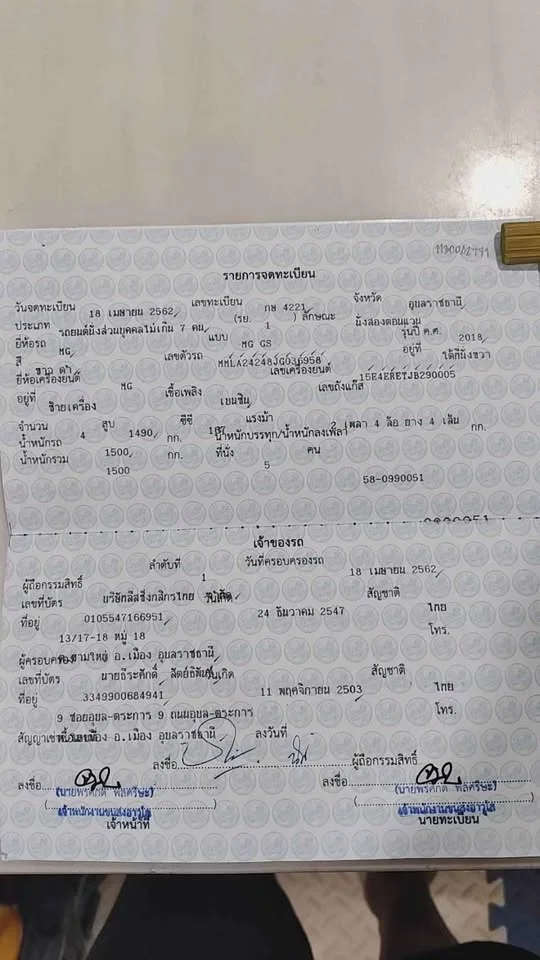 1130062771
รายการจดทะเบียน
วันจดทะเบียน 18 เมษายน 2562 เลขทะเบียน กษ 4221 จังหวัด อุบลราชธานี
ประเภท รถยนต์นั่งส่วนบุคคลไม่เกิน 7 คน (รย. 1 ) ลักษณะ นั่งสองตอนแวน
ยี่ห้อรถ MG แบบ MG GS รุ่นปี ค.ศ. 2018
สี ขาว ดำ เลขตัวรถ MMLA24248JG036958 อยู่ที่ ใต้ที่นั่งขวา
ยี่ห้อเครื่องยนต์ MG เลขเครื่องยนต์ 15E4ERETJB290005
อยู่ที่ ซ้ายเครื่อง เชื้อเพลิง เบนซิน เลขถังแก๊ส
จำนวน 4 สูบ 1490 ซีซี 167 แรงม้า 2 เพลา 4 ล้อ ยาง 4 เส้น
น้ำหนักรถ 1500 กก. น้ำหนักบรรทุก/น้ำหนักลงเพลา กก.
น้ำหนักรวม 1500 กก. ที่นั่ง 5 คน
58-0990051
เจ้าของรถ
ลำดับที่ 1 วันที่ครอบครองรถ 18 เมษายน 2562
ผู้ถือกรรมสิทธิ์ บริษัทลีสซิ่งกสิกรไทย
เลขที่บัตร 0105547166951 วันเกิด 24 ธันวาคม 2547 สัญชาติ ไทย
ที่อยู่ 13/17-18 หมู่ 18 โทร.
อ.เมือง อุบลราชธานี
ผู้ครอบครอง นายธีระศักดิ์
เลขที่บัตร 3349900684941 วันเกิด 11 พฤศจิกายน 2503 สัญชาติ ไทย
ที่อยู่ 9 ซอยอุบล-ตระการ 9 ถนนอุบล-ตระการ โทร.
อ.เมือง อุบลราชธานี
สัญญาเช่าซื้อเลขที่ ลงวันที่
ลงชื่อ ผู้ถือกรรมสิทธิ์
ลงชื่อ ลงชื่อ
เจ้าพนักงานขนส่งอาวุโส เจ้าพนักงานขนส่งอาวุโส
เจ้าหน้าที่ นายทะเบียน